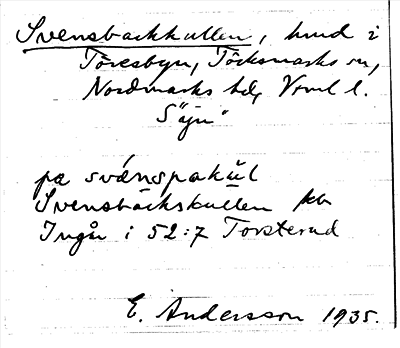 Svensbackkullen, hmd i
Töresbyn, Töcksmarks sn,
Nordmarks hd, Vrml l.
S "äju"
pa svǽnspakŭl
Svensbäckskullen kb
Ingår i 52:7 Torsterud
E. Andersson 1935.